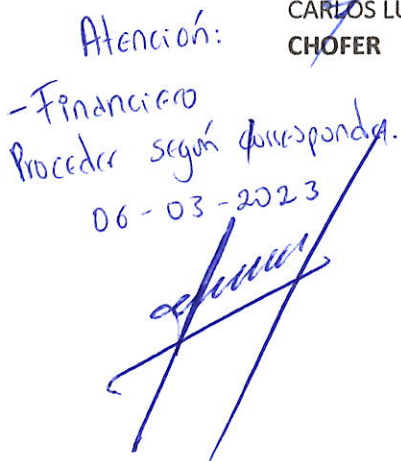 CARLOS LU
CHOFER
Atención:
- Financiero
Proceder según corresponda.
06-03-2023